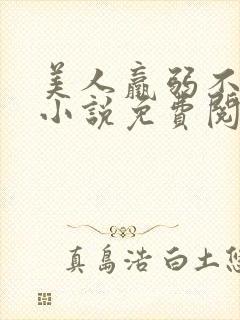 美人羸弱不
小說免費閱
真島浩 白土悠